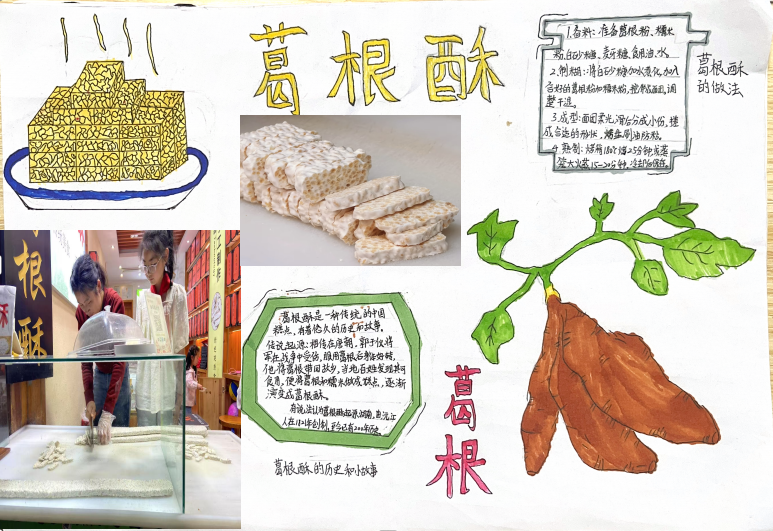 葛根酥
1.备料:准备葛根粉、糯米
粉、白砂糖、麦芽糖、食用油、水。
2.制糊:将白砂糖加水煮化,加入
合好的葛根粉和糯米粉,搅拌成面团,调
整干湿。
3.成型:面团柔光滑后分成小份,搓
成合适的形状,烤盘刷油防粘。
4.熟制:烤箱180℃烤25分钟或蒸
笼大火蒸15-20分钟,冷却后保存。
葛根酥
的做法
葛根酥
葛根酥是一种传统的中国
糕点,有着悠久的历史和故事。
传说起源:相传在唐朝,郭子仪将
军在战争中受伤,服用葛根后制好转,
他将葛根带回故乡,当地百姓发现其可
食用,便将葛根和糯米做成糕点,逐渐
演变成葛根酥。
有说法认为葛根酥起源
人在1821年创制,至今已有200年历史。
葛根酥的历史和小故事
葛根